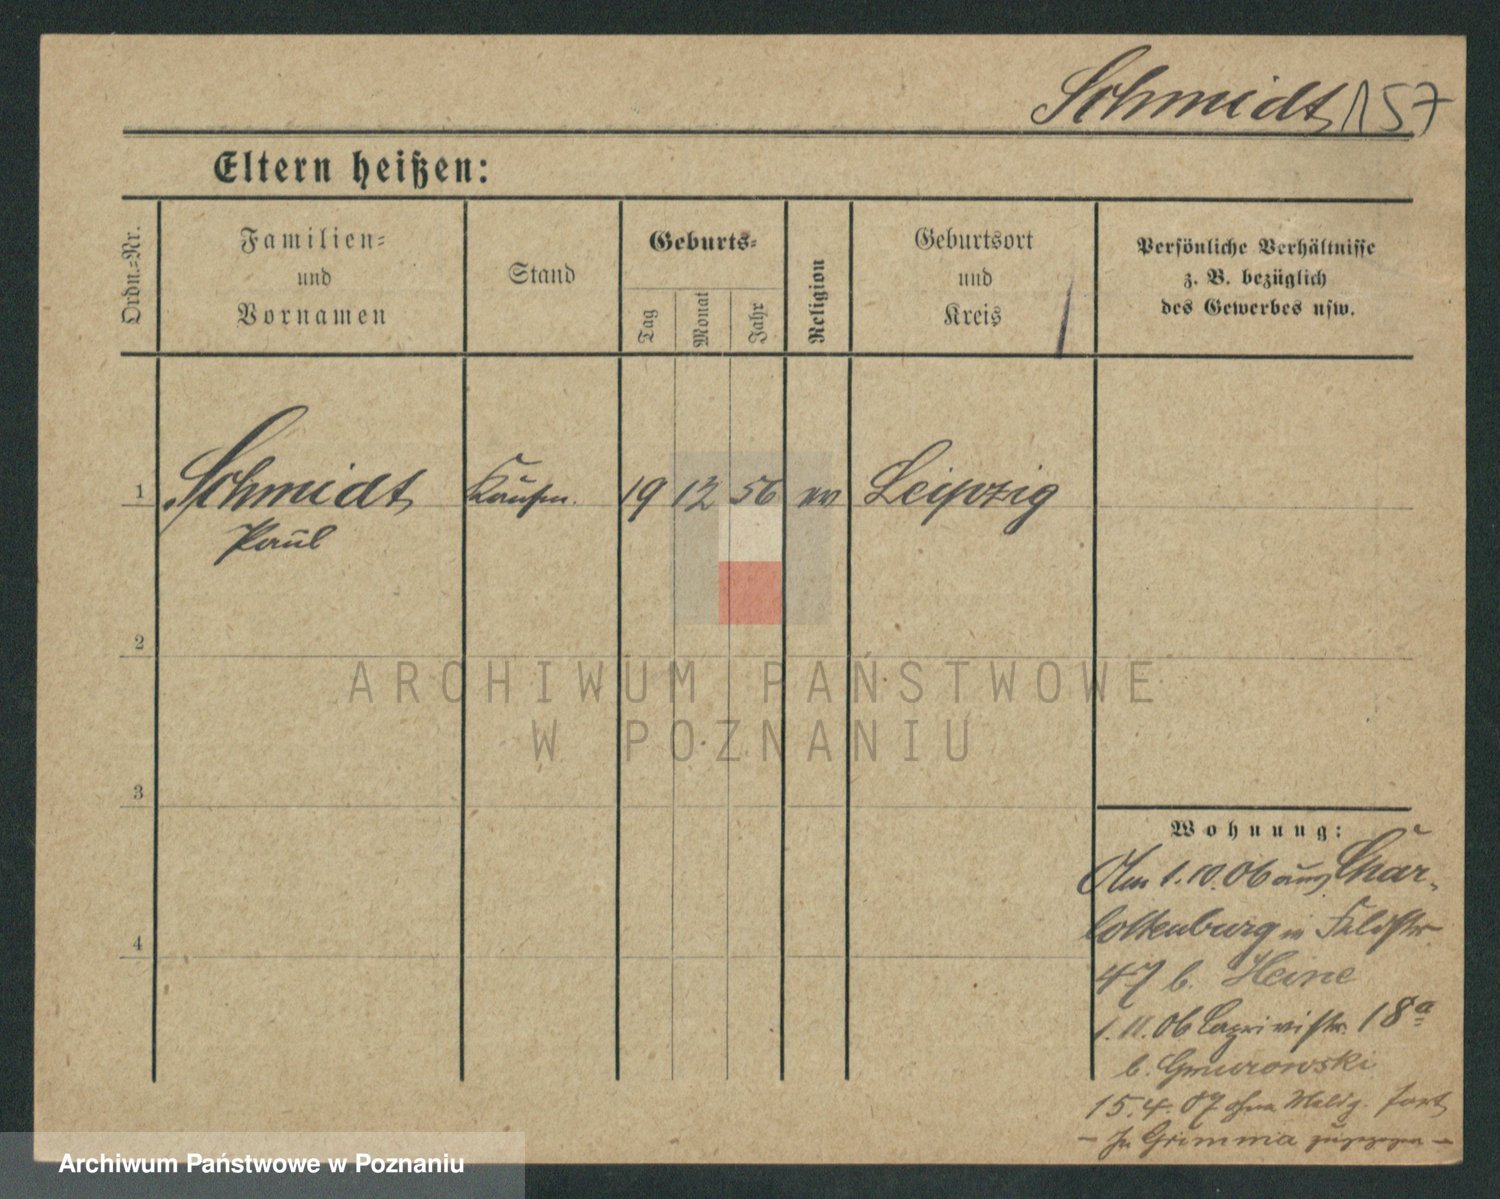 Schmidt 157
Eltern heißen:
Ordn.-Nr.
Familien-
und
Vornamen
Stand
Geburts-
Tag
Monat
Jahr
Religion
Geburtsort
und
Kreis
Persönliche Verhältnisse
z. B. bezüglich
des Gewerbes usw.
1 Schmidt Kaufm. 19 12 56 ev Leipzig
Paul
2
3
4
ARCHIWUM PAŃSTWOWE
W POZNANIU
Wohnung:
Am 1.10.06 aus Char-
lottenburg in Feldstr
47 b. Heine
1.11.06 Caprivistr. 18a
b. Gmurowski
15.4.07 ohne Meldg. fort
– In Grimma zugezogen –
Archiwum Państwowe w Poznaniu